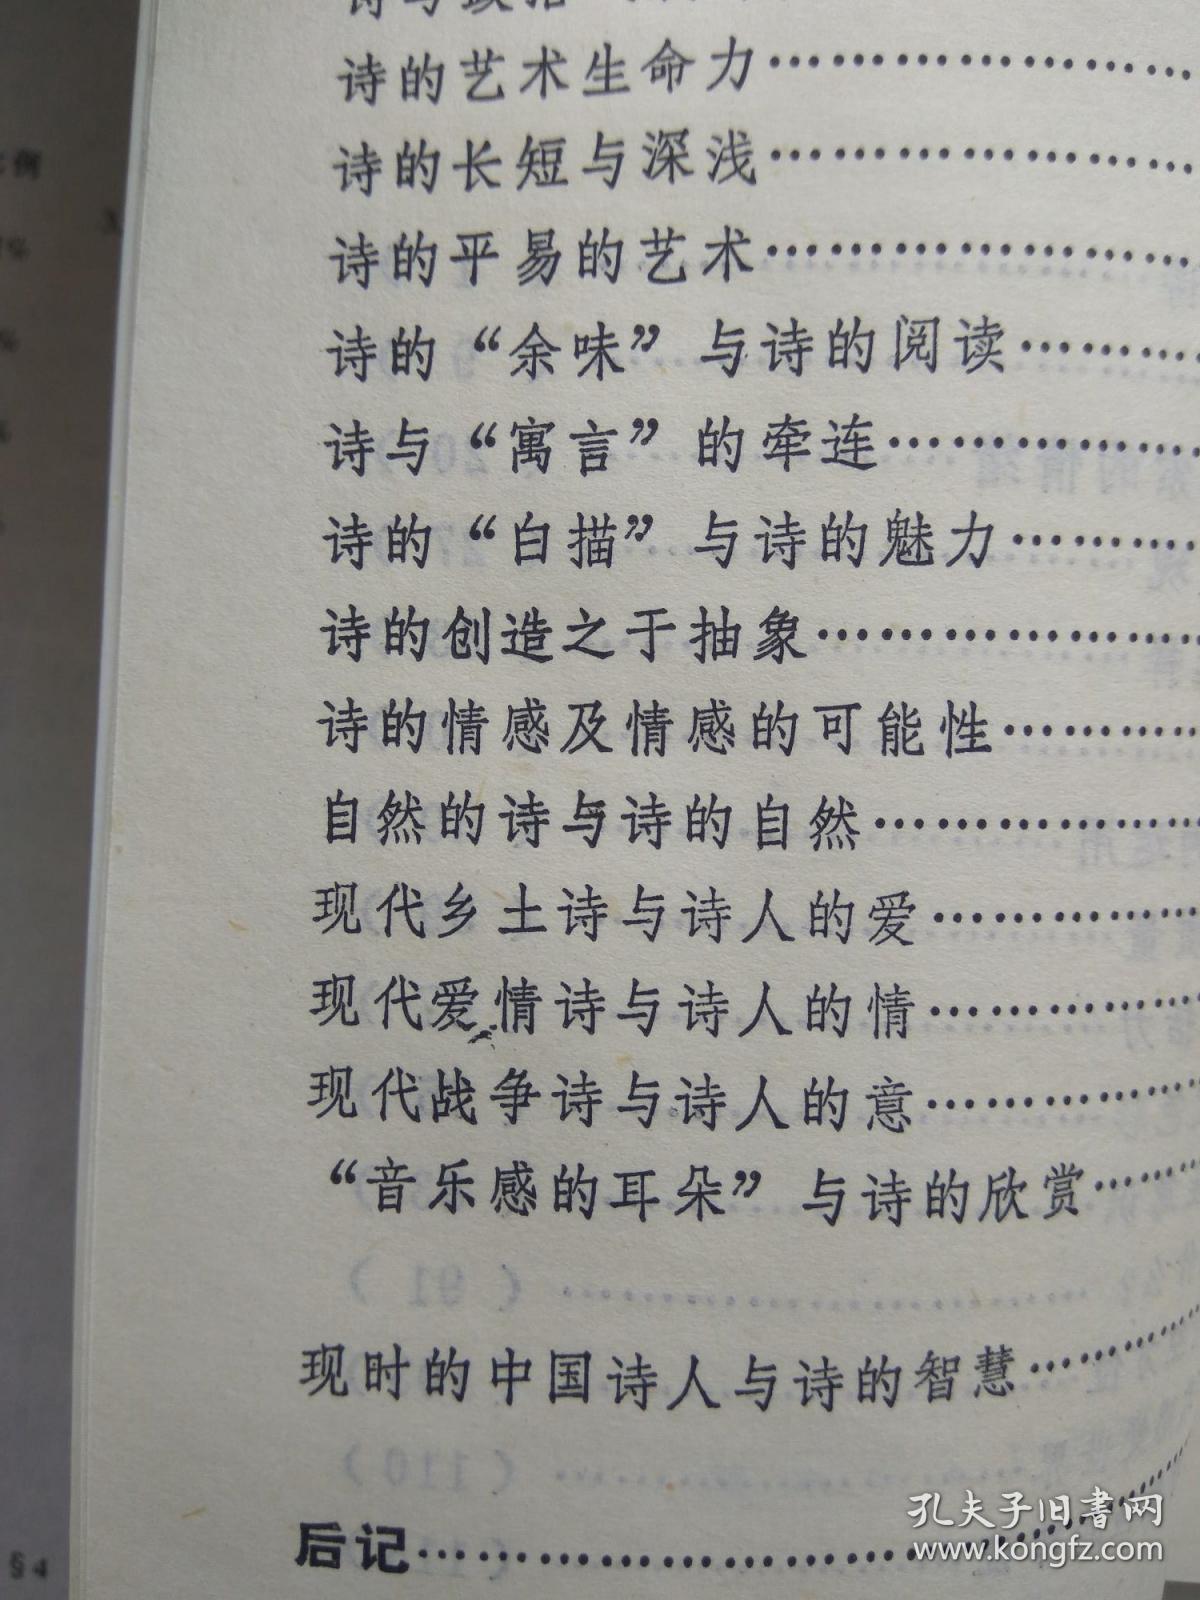 诗的艺术生命力…………………
诗的长短与深浅…………………
诗的平易的艺术…………………
诗的“余味”与诗的阅读…………
诗与“寓言”的牵连………………
诗的“白描”与诗的魅力…………
诗的创造之于抽象………………
诗的情感及情感的可能性………
自然的诗与诗的自然……………
现代乡土诗与诗人的爱…………
现代爱情诗与诗人的情…………
现代战争诗与诗人的意…………
“音乐感的耳朵”与诗的欣赏……
现时的中国诗人与诗的智慧……
后记…………………………
§4
孔夫子旧书网
www.kongfz.com